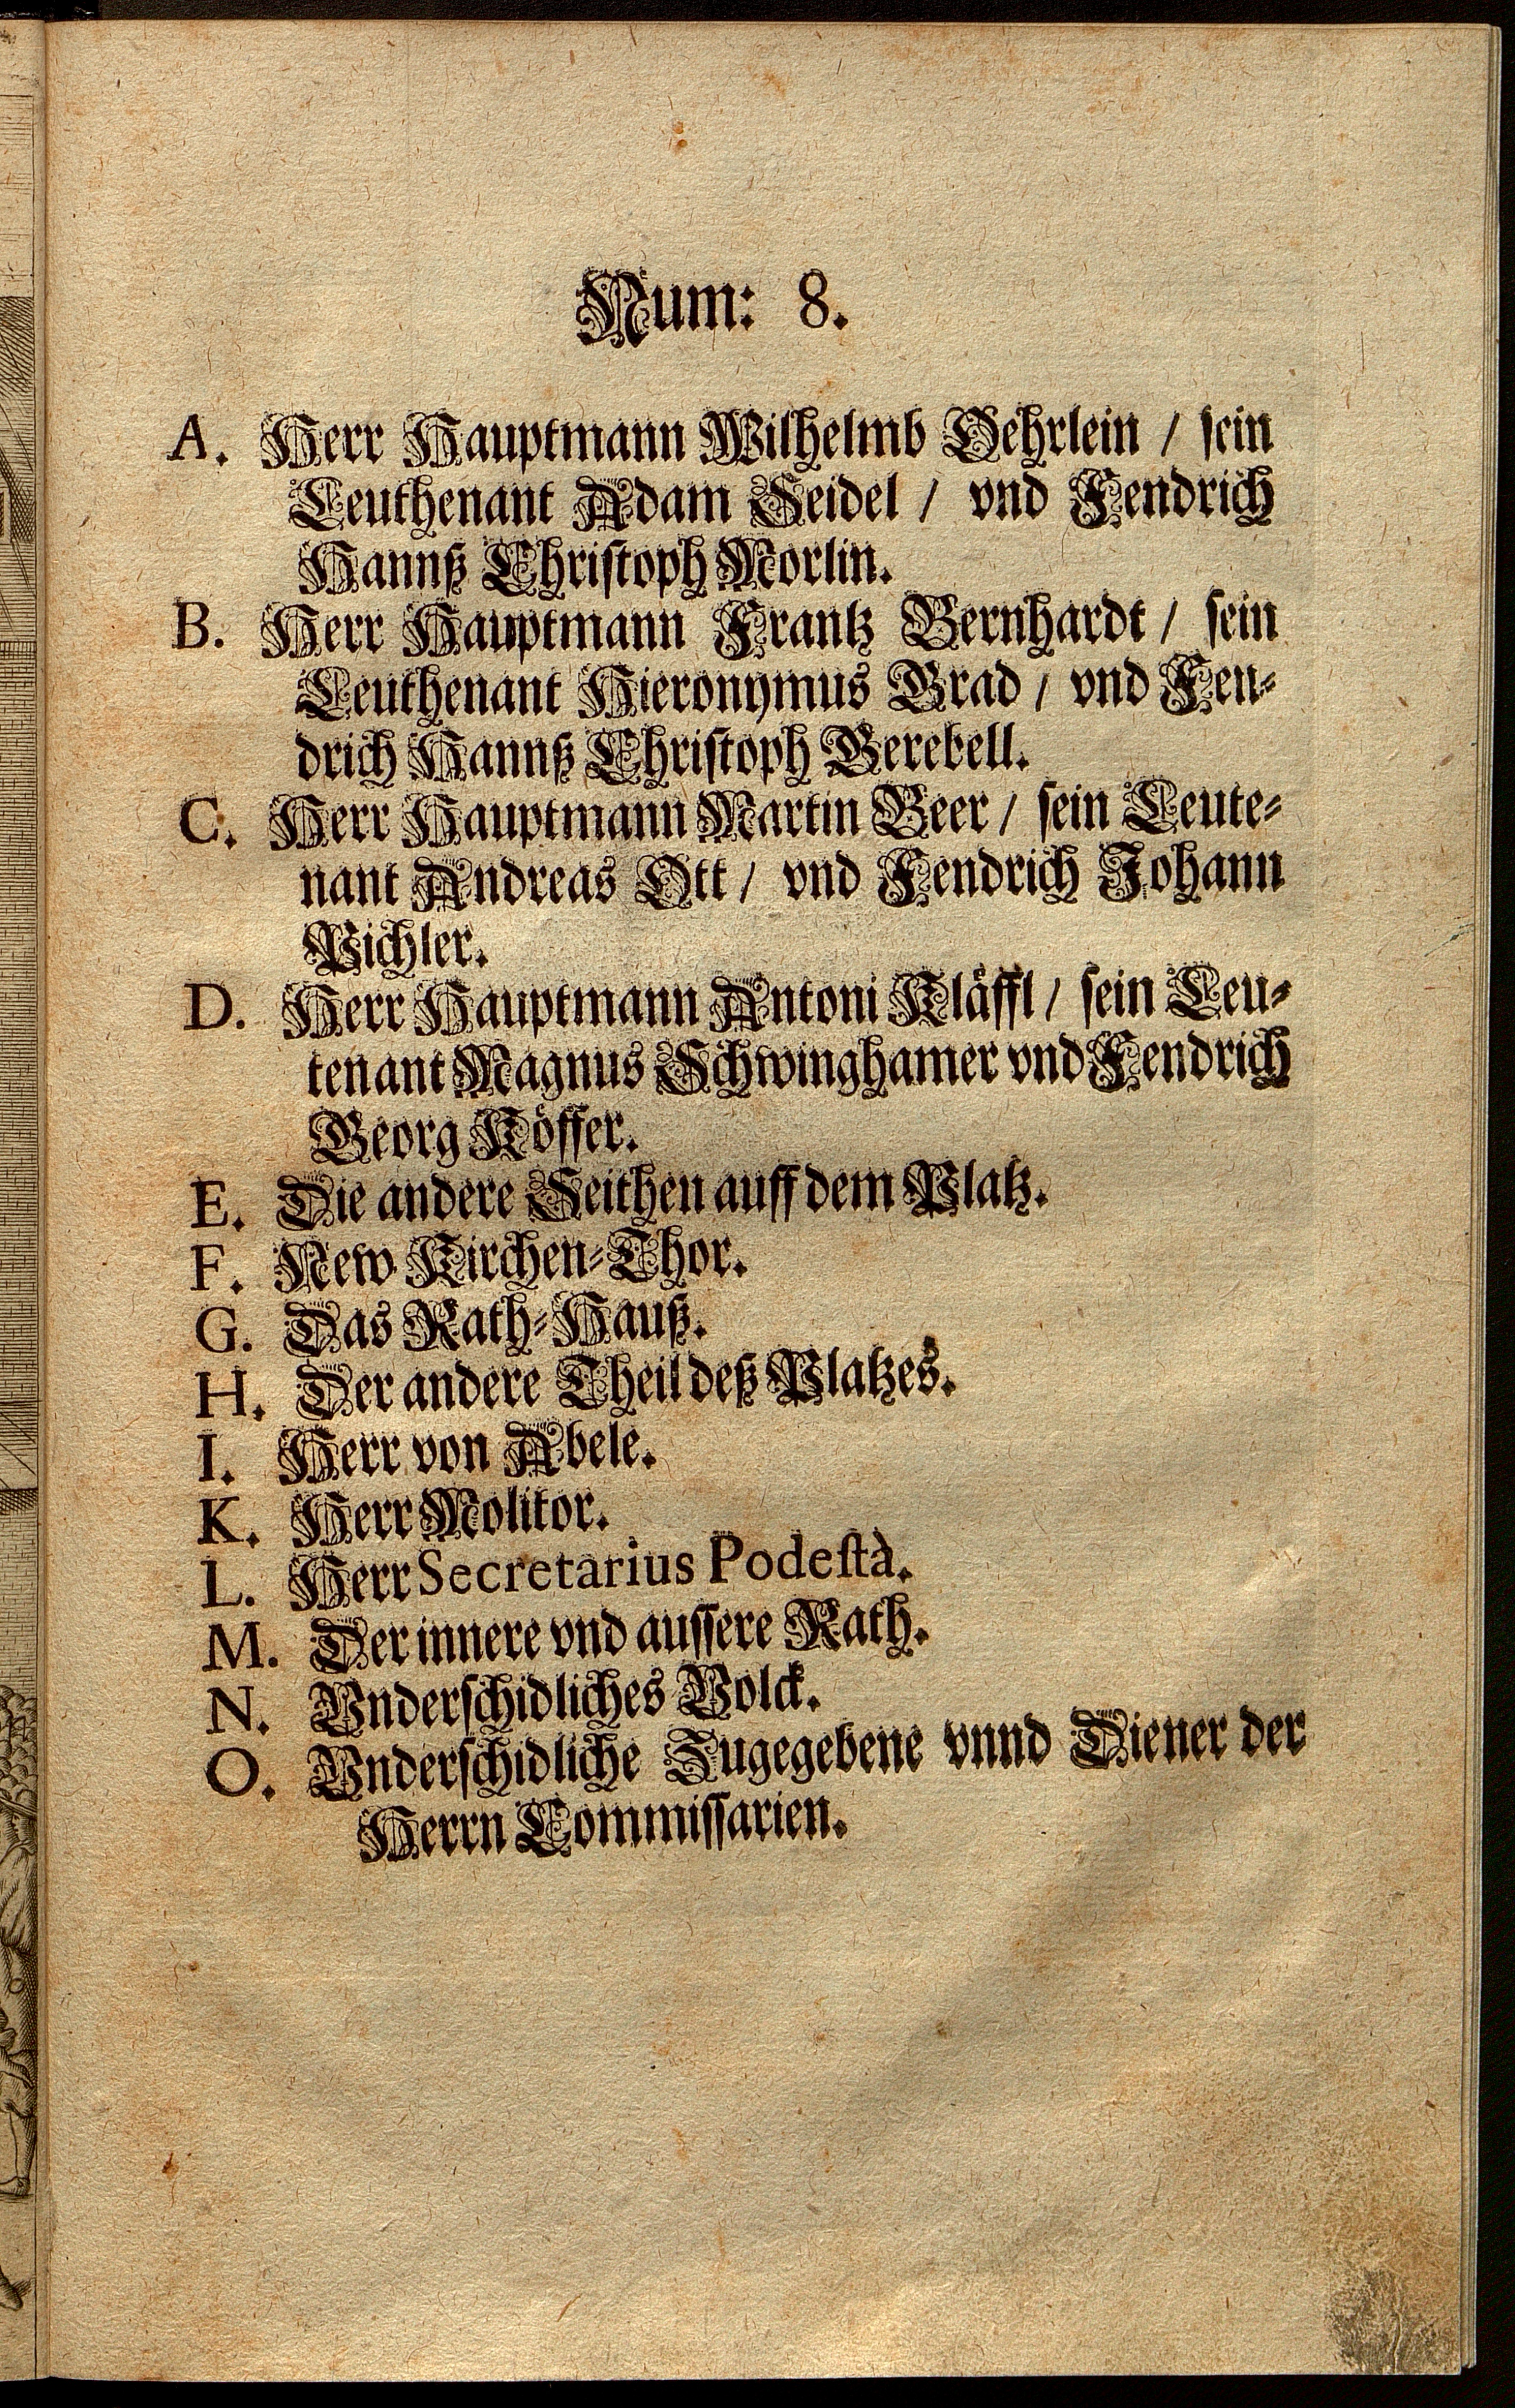 Num: 8.
A. Herr Hauptmann Wilhelmb Gehrlein / sein
Leuthenant Adam Seidel / vnd Fendrich
Hannß Christoph Morlin.
B. Herr Hauptmann Frantz Bernhardt / sein
Leuthenant Hieronymus Grad / vnd Fen-
drich Hannß Christoph Gerebell.
C. Herr Hauptmann Martin Beer / sein Leute-
nant Andreas Ott / vnd Fendrich Johann
Pichler.
D. Herr Hauptmann Antoni Kläffl / sein Leu-
tenant Magnus Schwinghamer vnd Fendrich
Georg Köffer.
E. Die andere Seithen auff dem Platz.
F. New Kirchen-Thor.
G. Das Rath-Hauß.
H. Der andere Theil deß Platzes.
I. Herr von Abele.
K. Herr Molitor.
L. Herr Secretarius Podestà.
M. Der innere vnd aussere Rath.
N. Vnderschidliches Volck.
O. Vnderschidliche Zugegebene vnnd Diener der
Herrn Commissarien.